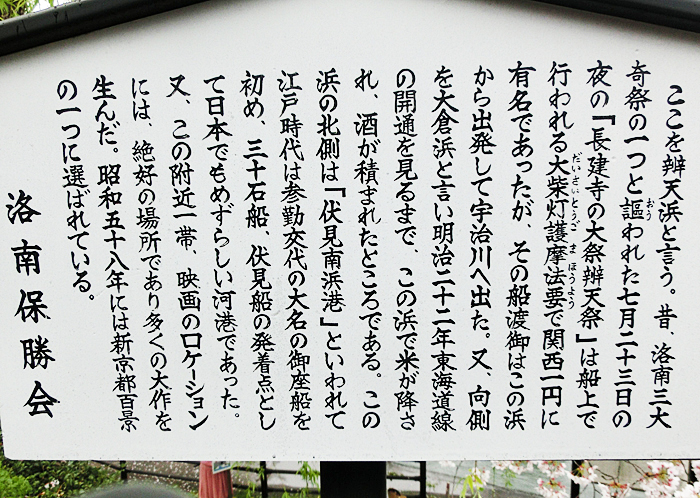 ここを辨天浜と言う。昔、洛南三大
奇祭の一つと謳われた七月二十三日の
おう
夜の「長建寺の大祭辨天祭」は船上で
行われる大柴灯護摩法要で関西一円に
だいさいとうごまほうよう
有名であったが、その船渡御はこの浜
から出発して宇治川へ出た。又、向側
を大倉浜と言い明治二十二年東海道線
の開通を見るまで、この浜で米が降さ
れ、酒が積まれたところである。この
浜の北側は「伏見南浜港」といわれて
江戸時代は参勤交代の大名の御座船を
初め、三十石船、伏見船の発着点とし
て日本でもめずらしい河港であった。
又、この附近一帯、映画のロケーション
には、絶好の場所であり多くの大作を
生んだ。昭和五十八年には新京都百景
の一つに選ばれている。
洛南保勝会